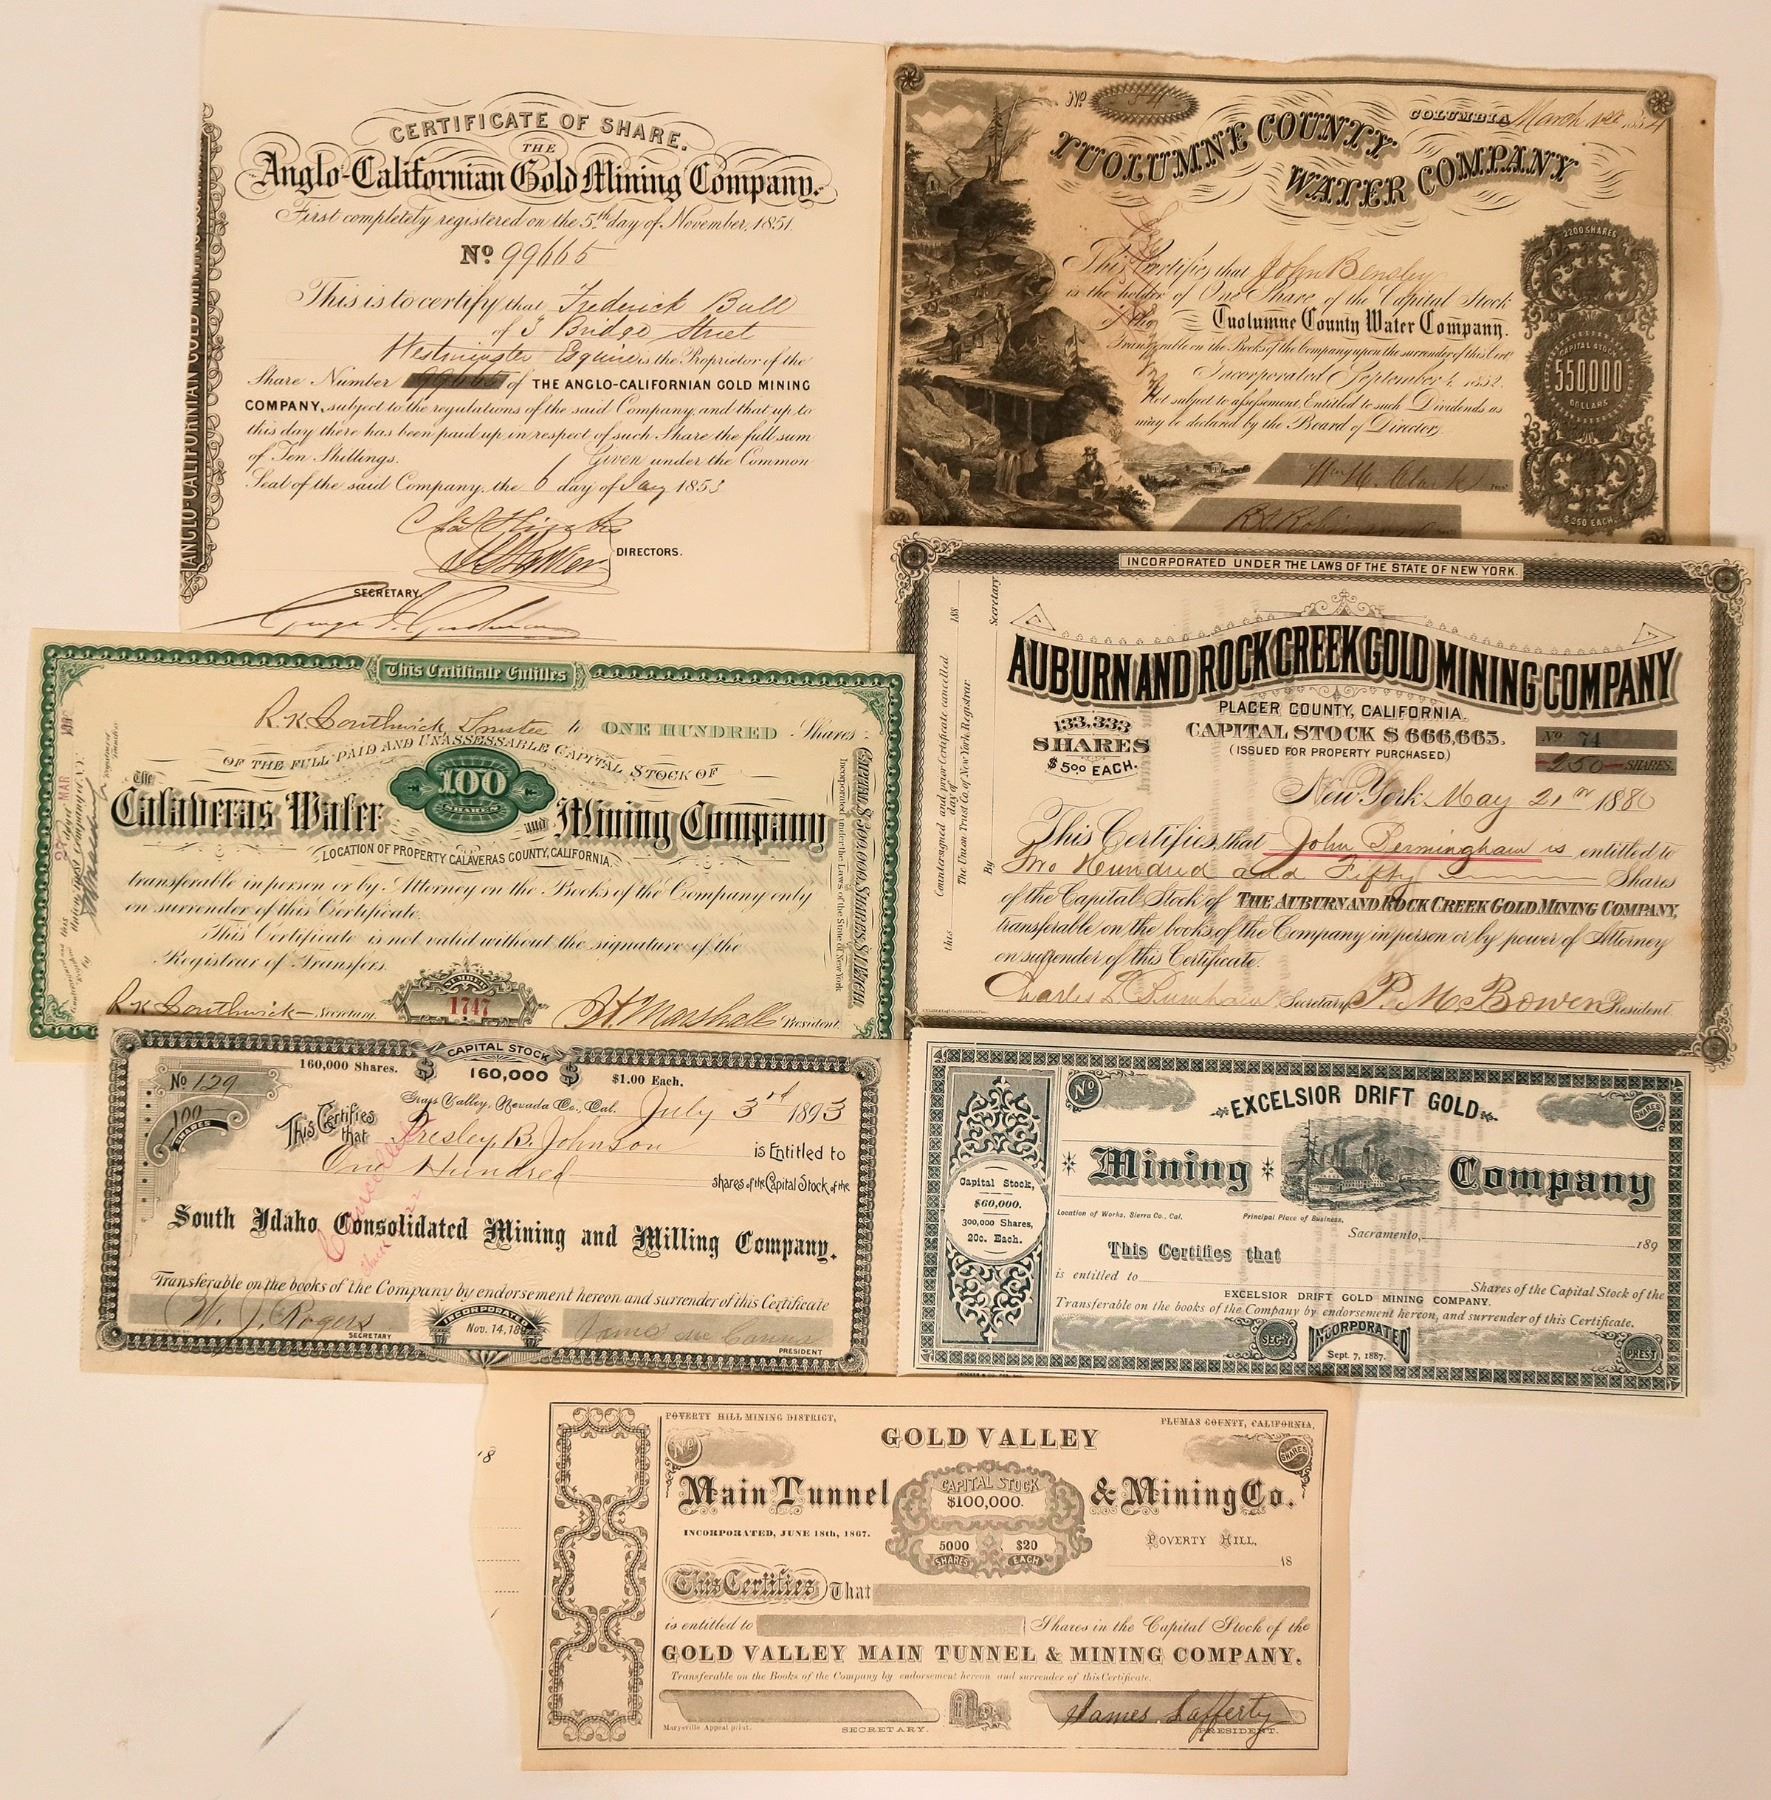 CERTIFICATE OF SHARE.
THE
Anglo-Californian Gold Mining Company.
First completely registered on the 5th day of November, 1851.
No 99665
This is to certify that Frederick Bull
of 3 Bridge Street
Westminster Esquire is the Proprietor of the
Share Number 99665 of THE ANGLO-CALIFORNIAN GOLD MINING
COMPANY, subject to the regulations of the said Company, and that up to
this day there has been paid up in respect of such Share the full sum
of Ten Shillings. Given under the Common
Seal of the said Company, the 6 day of Jany 1853
DIRECTORS.
SECRETARY.
No 54
COLUMBIA March 1854
TUOLUMNE COUNTY
WATER COMPANY
This Certifies that John Bensley
is the holder of One Share of the Capital Stock
of the Tuolumne County Water Company.
Transferable on the Books of the Company upon the surrender of this Cert
Incorporated September 4, 1852.
Not subject to assessment, Entitled to such Dividends as
may be declared by the Board of Directors
Wm H. Clark
2200 SHARES
CAPITAL STOCK
550,000
DOLLARS
$250 EACH.
This Certificate Entitles
R.K. Southwick Trustee to ONE HUNDRED Shares
OF THE FULL PAID AND UNASSESSABLE CAPITAL STOCK OF
The Calaveras Water and Mining Company
100
SHARES
LOCATION OF PROPERTY CALAVERAS COUNTY, CALIFORNIA.
transferable in person or by Attorney on the Books of the Company only
on surrender of this Certificate.
This Certificate is not valid without the signature of the
Registrar of Transfers.
R K Southwick Secretary.
NUMBER
1747
Marshall President
CAPITAL $500,000. SHARES $1 EACH.
Incorporated under the Laws of the State of New York
INCORPORATED UNDER THE LAWS OF THE STATE OF NEW YORK.
AUBURN AND ROCK CREEK GOLD MINING COMPANY
PLACER COUNTY, CALIFORNIA.
133,333
SHARES
$5.00 EACH.
CAPITAL STOCK $666,665.
(ISSUED FOR PROPERTY PURCHASED)
No. 74
250 SHARES.
New York May 21st 1880
This Certifies, that John Bermingham is entitled to
Two Hundred and Fifty Shares
of the Capital Stock of THE AUBURN AND ROCK CREEK GOLD MINING COMPANY,
transferable on the books of the Company in person or by power of Attorney
on surrender of this Certificate.
Secretary P. Mc Bowen President
Countersigned and prior Certificate cancelled
this day of 188
The Union Trust Co. of New York Registrar.
By Secretary
160,000 Shares.
CAPITAL STOCK
$ 160,000 $
$1.00 Each.
No 129
100
SHARES
Grass Valley, Nevada Co., Cal. July 3rd 1893
This Certifies that Presley B. Johnson is Entitled to
One Hundred shares of the Capital Stock of the
South Idaho Consolidated Mining and Milling Company.
Cancelled
Transferable on the books of the Company by endorsement hereon and surrender of this Certificate
W. J. Rogers
SECRETARY
INCORPORATED
Nov. 14, 189
PRESIDENT
No
EXCELSIOR DRIFT GOLD
SHARES
Mining Company
Capital Stock,
$60,000.
300,000 Shares,
20c. Each.
Location of Works, Sierra Co., Cal. Principal Place of Business,
Sacramento, 189
This Certifies that
is entitled to Shares of the Capital Stock of the
EXCELSIOR DRIFT GOLD MINING COMPANY.
Transferable on the books of the Company by endorsement hereon, and surrender of this Certificate.
SEC'Y
INCORPORATED
Sept. 7, 1887.
PREST.
POVERTY HILL MINING DISTRICT,
PLUMAS COUNTY, CALIFORNIA.
No
GOLD VALLEY
SHARES
Main Tunnel & Mining Co.
CAPITAL STOCK
$100,000.
5000 $20
SHARES EACH
INCORPORATED, JUNE 18th, 1867.
POVERTY HILL,
18
This Certifies That
is entitled to Shares in the Capital Stock of the
GOLD VALLEY MAIN TUNNEL & MINING COMPANY.
Transferable on the Books of the Company by endorsement hereon and surrender of this Certificate.
James Lafferty
Marysville Appeal print.
SECRETARY.
PRESIDENT.